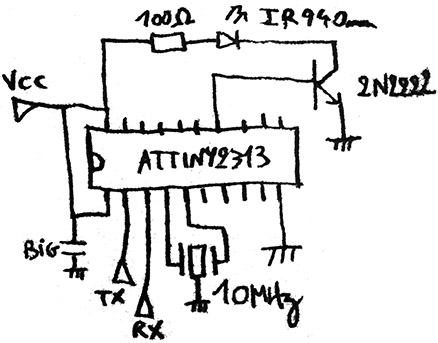 100Ω IR 940nm
VCC
2N2222
ATTINY2313
BiG
TX
10MHz
RX